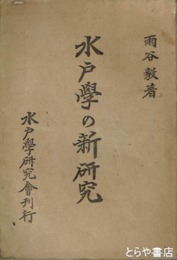 雨谷毅著
水戸學の新研究
水戸學研究會刊行
とらや書店